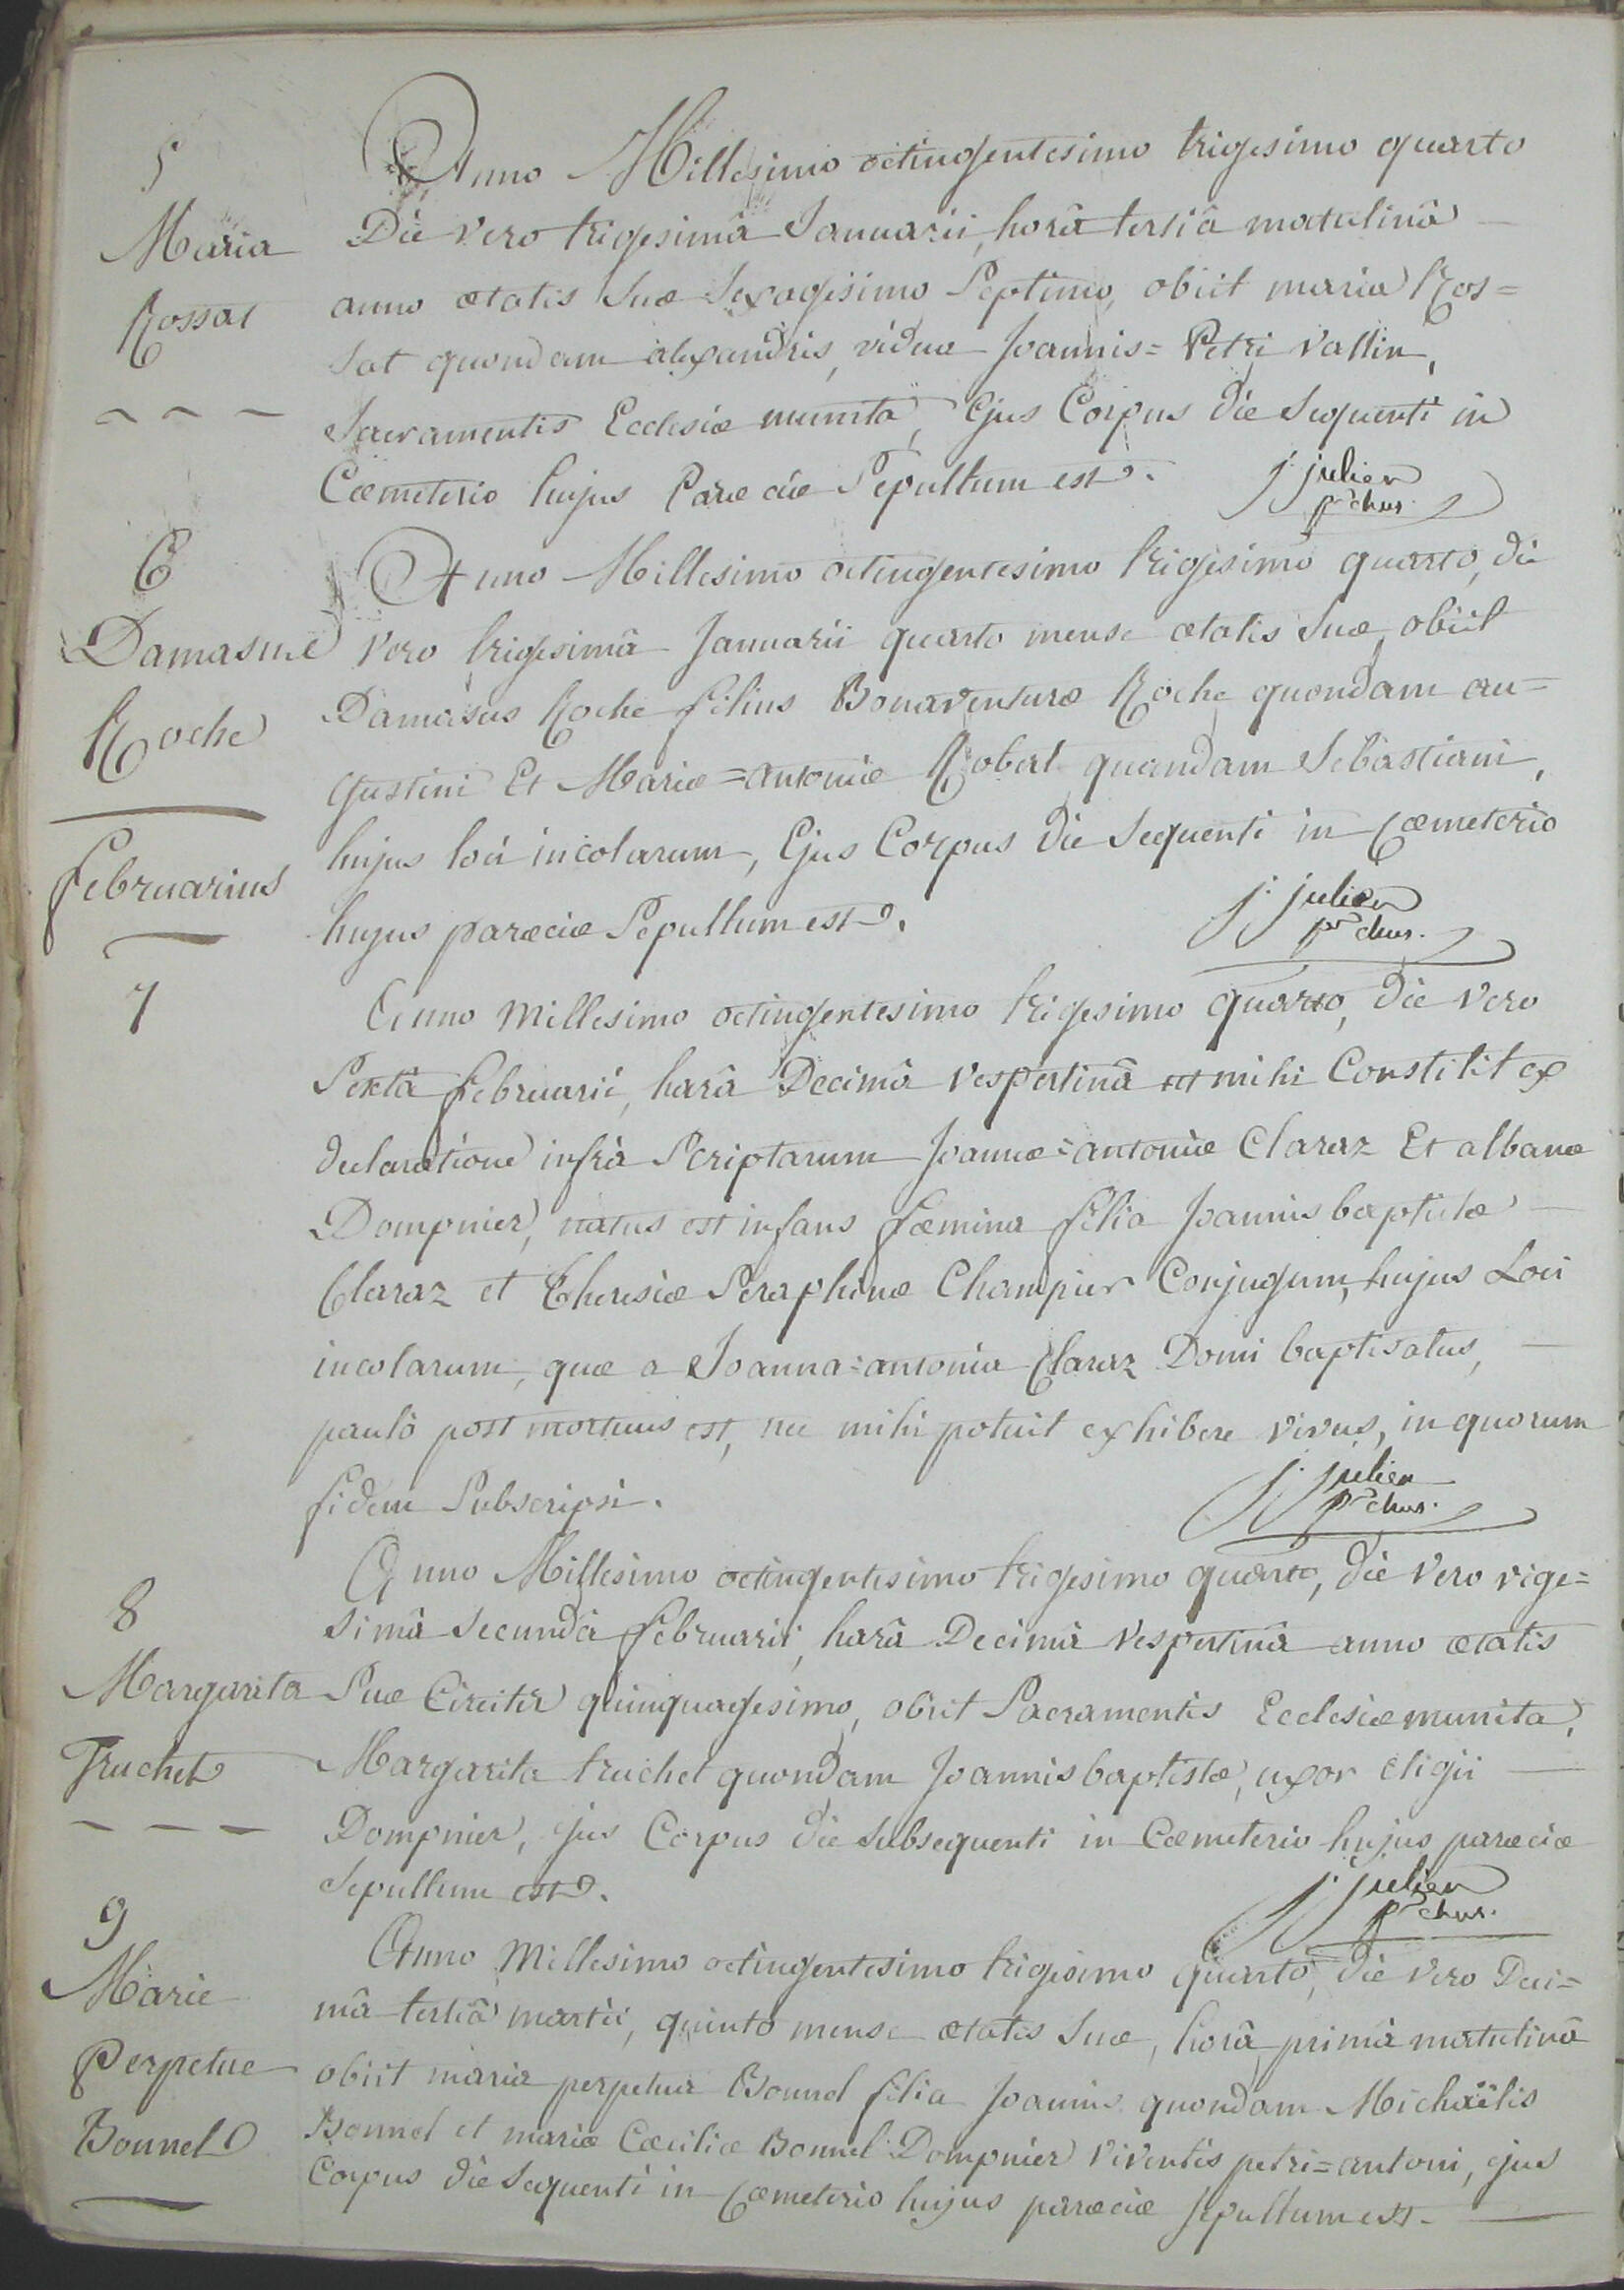 5
Maria
Rossat
Anno Millesimo octingentesimo trigesimo quarto
Die vero trigesimâ Januarii, horâ tertiâ matutinâ
anno ætatis suæ sexagesimo septimo, obiit maria Ros=
sat quondam alexandris, viduæ Joannis=Petri Vallin,
Sacramentis Ecclesiæ munita, Ejus Corpus die sequenti in
Cœmeterio hujus Parœciæ Sepultum est.
j julien
pr chus.
6
Damasne
Roche
Anno Millesimo octingentesimo trigesimo quarto, die
vero trigesimâ Januarii quarto mense ætatis suæ, obiit
Damasus Roche filius Bonaventuræ Roche quondam au=
gustini Et Mariæ=antoniæ Robert quondam Sebastiani,
hujus loci incolarum, Ejus Corpus die sequenti in Cœmeterio
hujus parœciæ Sepultum est.
j julien
pr chus.
februarius
7
Anno Millesimo octingentesimo trigesimo quarto, die vero
Sextâ februarii, harâ Decimâ vespertinâ ut mihi Constitit ex
declaratione infrà Scriptarum Joannæ=antoniæ Claraz Et albanæ
Dompnier, natus est infans fœmina filia Joannis baptistæ
Claraz et Theresiæ Seraphinæ Champier Conjugum, hujus Loci
incolarum, quæ a Joanna=antonia Claraz Domi baptisatus,
paulò post mortuus est, nec mihi potuit exhibere vivus, in quorum
fidem Subscripsi.
j julien
pr chus.
8
Margarita
Truchet
Anno Millesimo octingentesimo trigesimo quarto, die vero vige=
simâ secundâ februarii, harâ Decimâ vespertinâ anno ætatis
Suæ Circiter quinquagesimo, obiit Sacramentis Ecclesiæ munita,
Margarita truchet quondam Joannis baptistæ, uxor eligii
Dompnier, ejus Corpus die subsequenti in Cœmeterio hujus parœciæ
sepultum est.
j julien
pr chus.
9
Marie
Perpetue
Bonnel
Anno Millesimo octingentesimo trigesimo quarto, die vero Deci=
mâ tertiâ martii, quinto mense ætatis suæ, horâ primâ matutinâ
obiit maria perpetua Bonnel filia Joannis quondam Michaëlis
Bonnel et mariæ Cæciliæ Bonnel Dompnier viventis petri=antoni, ejus
Corpus die sequenti in Cœmeterio hujus parœciæ sepultum est.